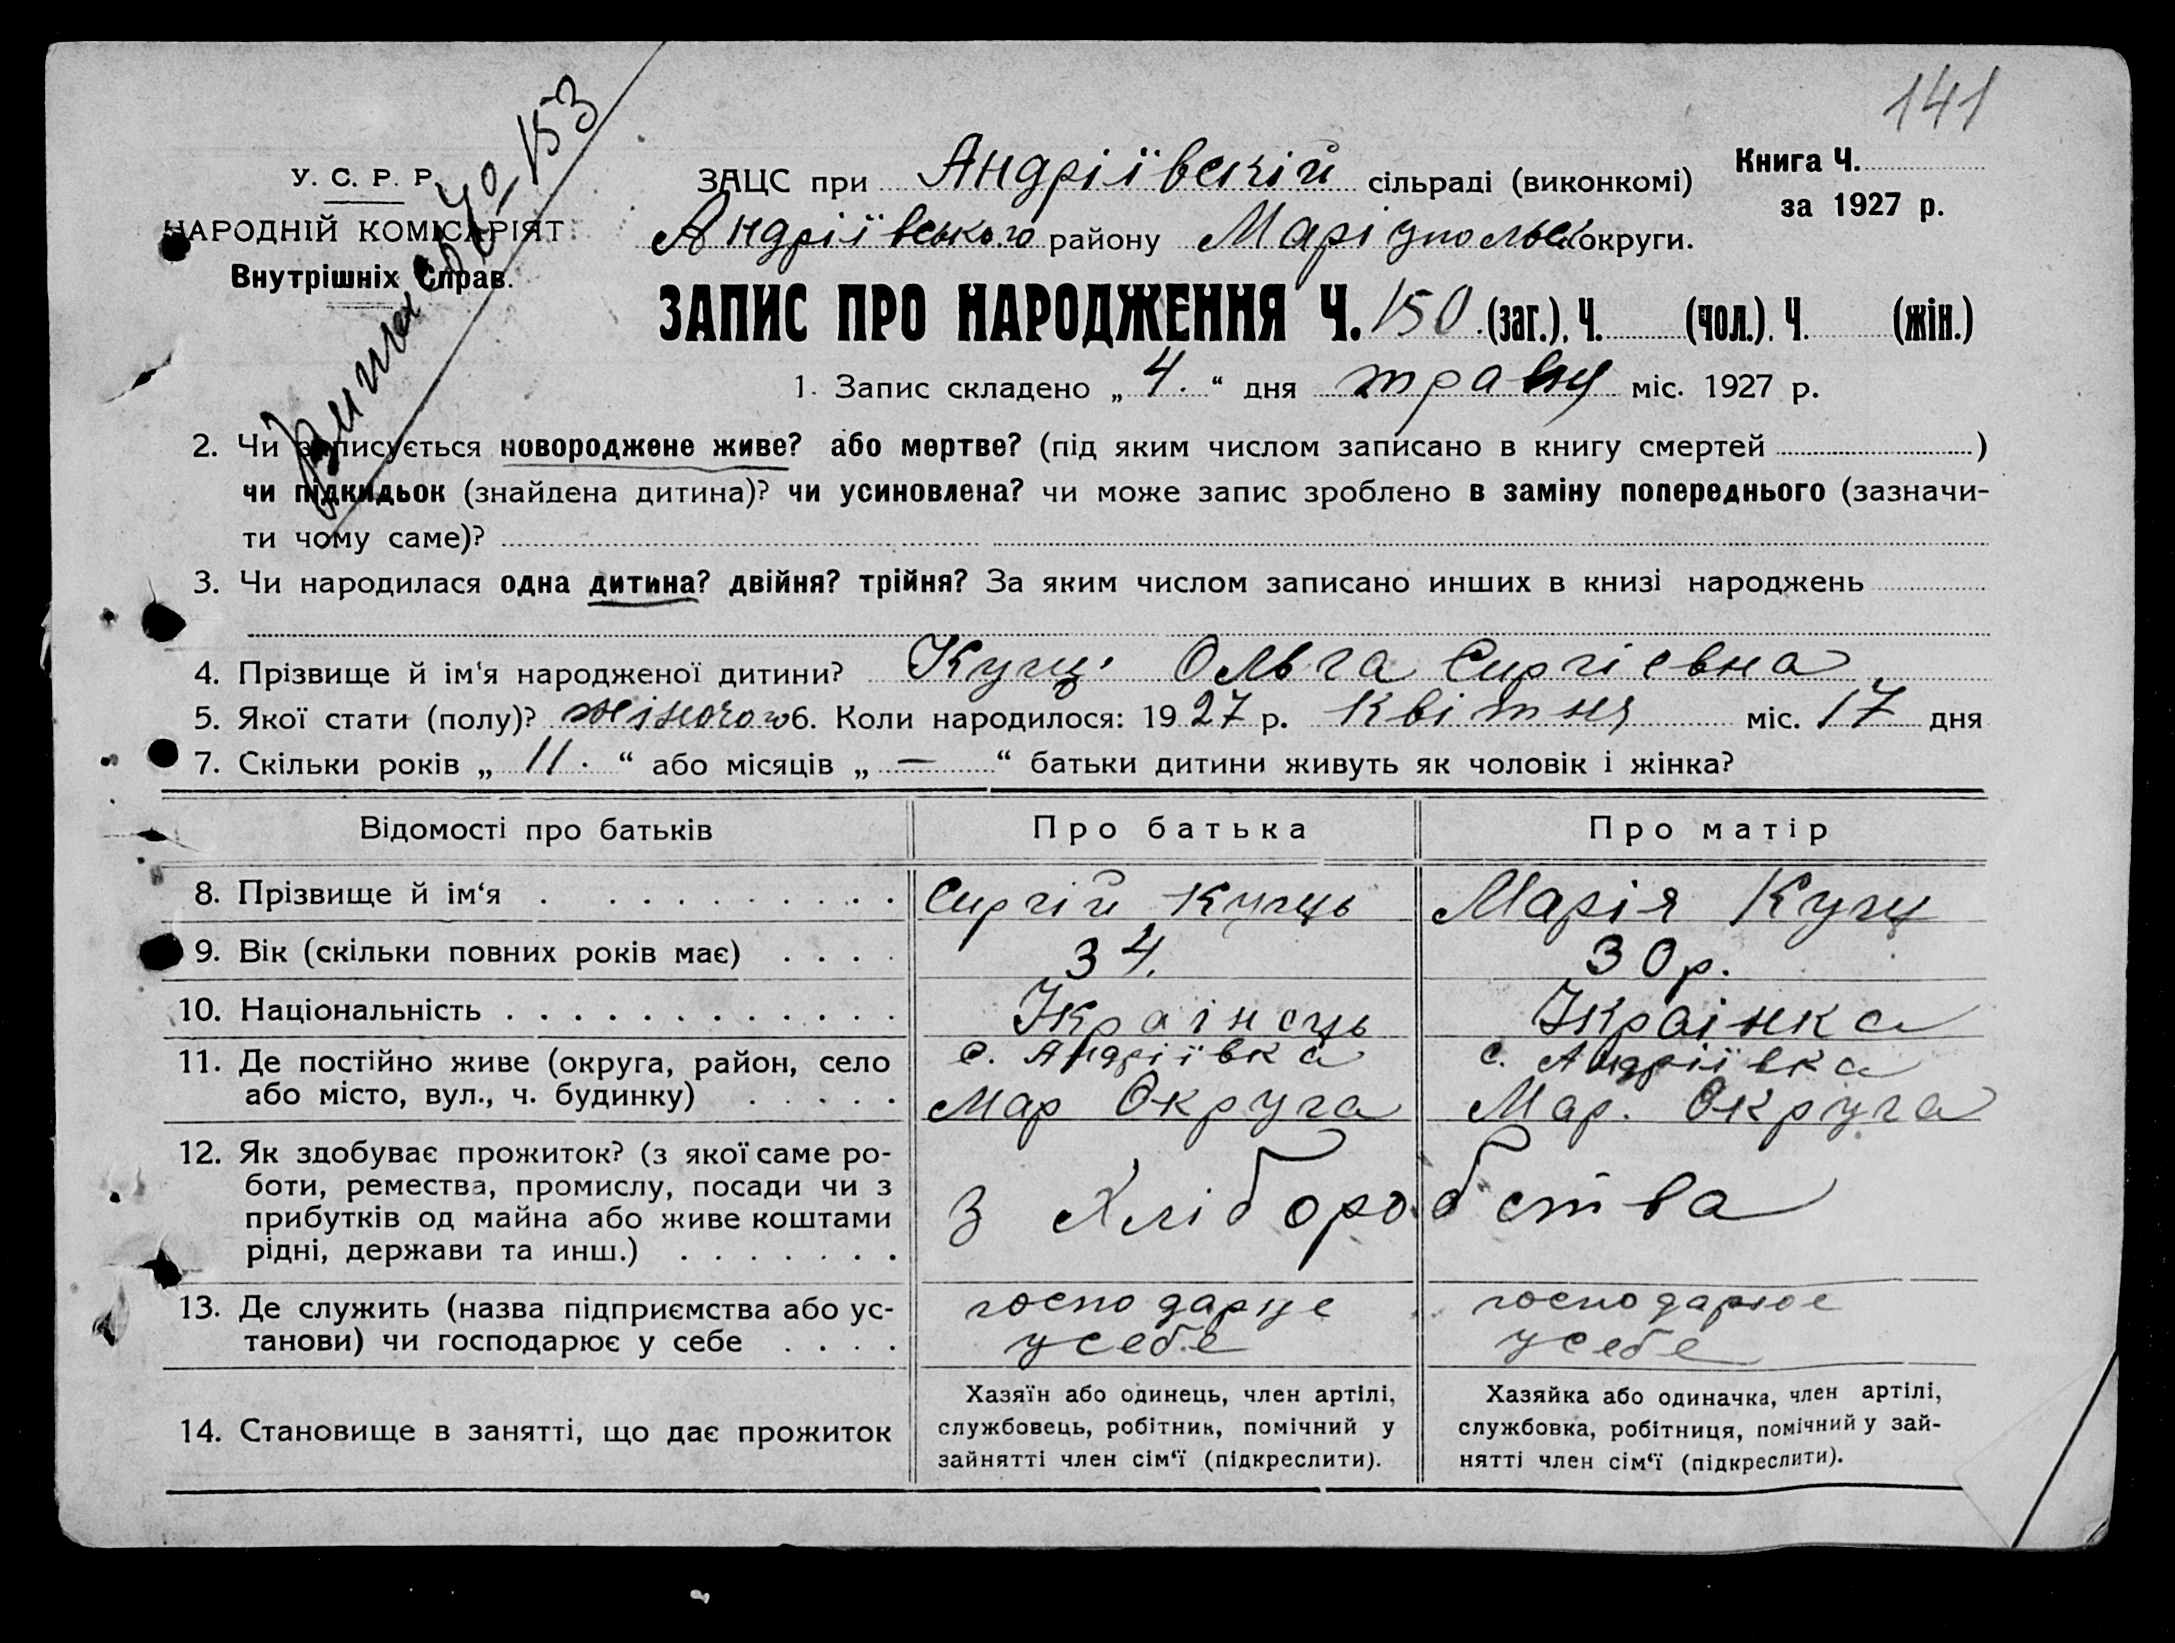 141
У. С. Р. Р.
НАРОДНІЙ КОМІСАРІЯТ
Внутрішніх Справ.
№ 153
ЗАЦС при Андріївскій сільраді (виконкомі)
Книга Ч.
за 1927 р.
Андріївського району Маріупольськ округи.
ЗАПИС ПРО НАРОДЖЕННЯ Ч. 150 (заг.), Ч. (чол.). Ч. (жін.)
1. Запис складено „ 4. “ дня травня міс. 1927 р.
2. Чи записується новороджене живе? або мертве? (під яким числом записано в книгу смертей )
чи підкидьок (знайдена дитина)? чи усиновлена? чи може запис зроблено в заміну попереднього (зазначи-
ти чому саме)?
3. Чи народилася одна дитина? двійня? трійня? За яким числом записано инших в книзі народжень
4. Прізвище й ім'я народженої дитини? Ольга Сиргієвна
5. Якої стати (полу)? жіночого 6. Коли народилося: 1927 р. Квітня міс. 17 дня
7. Скільки років „ 11. “ або місяців „ — “ батьки дитини живуть як чоловік і жінка?
Відомості про батьків Про батька Про матір
8. Прізвище й ім‘я Сиргій Марія
9. Вік (скільки повних років має) 34. 30 р.
10. Національність Українець Українка
11. Де постійно живе (округа, район, село с. Андріївка с. Андріївка
або місто, вул., ч. будинку) Мар Округа Мар. Округа
12. Як здобуває прожиток? (з якої саме ро-
боти, ремества, промислу, посади чи з
прибутків од майна або живе коштами
рідні, держави та инш.) З Хліборобства
13. Де служить (назва підприємства або ус- господарує господарює
танови) чи господарює у себе у себе у себе
14. Становище в занятті, що дає прожиток
Хазяїн або одинець, член артілі,
службовець, робітник, помічний у
зайнятті член сім‘ї (підкреслити).
Хазяйка або одиначка, член артілі,
службовка, робітниця, помічний у зай-
нятті член сім‘ї (підкреслити).